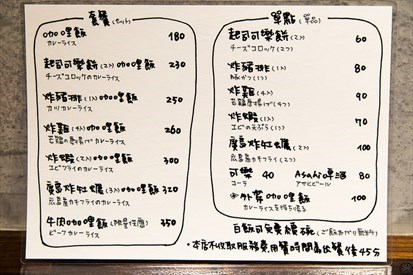 套餐(セット)
咖哩飯 180
カレーライス
起司可樂餅(2入)咖哩飯 230
チーズコロッケのカレーライス
炸豬排(1入)咖哩飯 250
カツカレーライス
炸雞(4入)咖哩飯 260
若鶏の唐揚げカレーライス
炸蝦(2入)咖哩飯 300
エビフライのカレーライス
廣島炸牡蠣(3入)咖哩飯 320
広島産カキフライのカレーライス
牛肉咖哩飯 350
ビーフカレーライス
單點(単品)
起司可樂餅(2入) 60
チーズコロッケ(2つ)
炸豬排(1入) 80
豚かつ(1つ)
炸雞(4入) 90
若鶏唐揚げ(4つ)
炸蝦(1入) 70
エビの天ぷら(1つ)
廣島炸牡蠣(2入) 100
広島産カキフライ(2つ)
可樂 40 Asahi啤酒 80
コーラ アサヒビール
外帶咖哩飯 100
カレーライスを持ち帰る
白飯可免費續碗(ご飯おかわり無料)
・本店不收取服務費用餐時間為出餐後45分